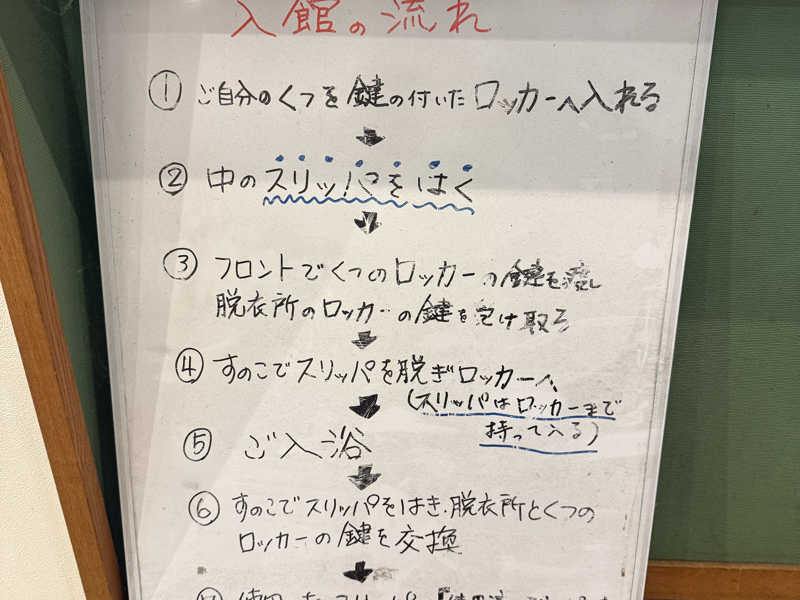 入館の流れ
① ご自分のくつを鍵の付いたロッカーへ入れる
② 中のスリッパをはく
③ フロントでくつのロッカーの鍵を渡し
脱衣所のロッカーの鍵を受け取る
④ すのこでスリッパを脱ぎロッカーへ
(スリッパはロッカーまで
持って入る)
⑤ ご入浴
⑥ すのこでスリッパをはき、脱衣所とくつの
ロッカーの鍵を交換